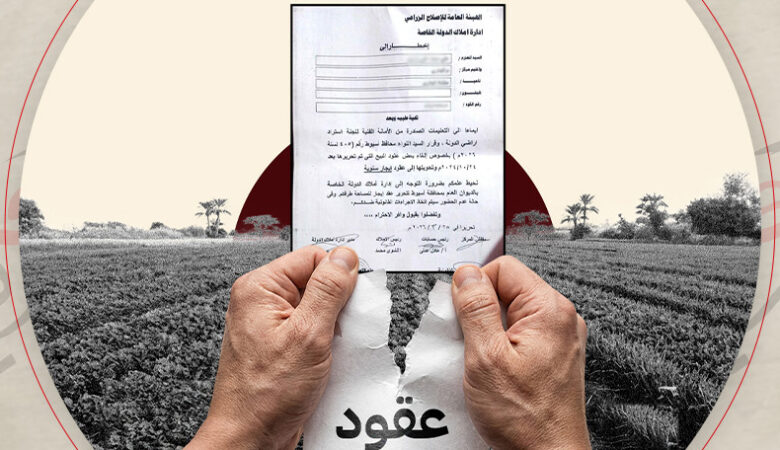 الهيئة العامة للإصلاح الزراعي
إدارة املاك الدولة الخاصة
إخطـــــــار إلى
السيد المحترم /
والمقيم مركز /
ناحيـــة /
رقم الكود /
تحية طيبه وبعد
إيماءا الي التعليمات الصادرة من الأمانة الفنية للجنة استرداد
اراضي الدولة ، وقرار السيد اللواء محافظ اسيوط رقم (٤٠٥ لسنة
٢٠٢٦م) بخصوص الغاء بعض عقود البيع التي تم تحريرها بعد
٢٠٢٤/١٠/٢٤م وتحويلها إلى عقود إيجار سنوية
نحيط علمكم بضرورة التوجه إلى إدارة أملاك الدولة الخاصة
بالديوان العام بمحافظة أسيوط لتحرير عقد إيجار للمساحة طرفكم. وفي
حالة عدم الحضور سيتم اتخاذ الاجراءات القانونية ضدكم..
وتفضلوا بقبول وافر الاحترام ....
رئيس حسابات
مدير ادارة املاك الدولة
عقود